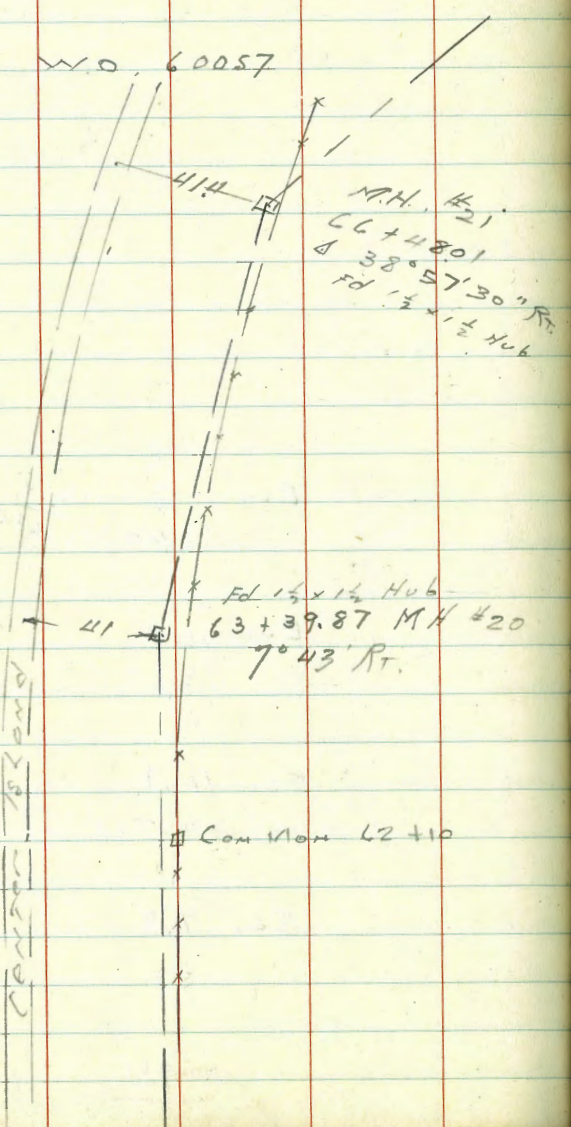 W.O. 60057
41.4
M.H. #21
66+48.01
Δ 38°57'30" Rt.
Fd 1½ x 1½ Hub
Fd 1½ x 1½ Hub
41
63+39.87 MH #20
7°43' Rt.
Con Mon 62+10